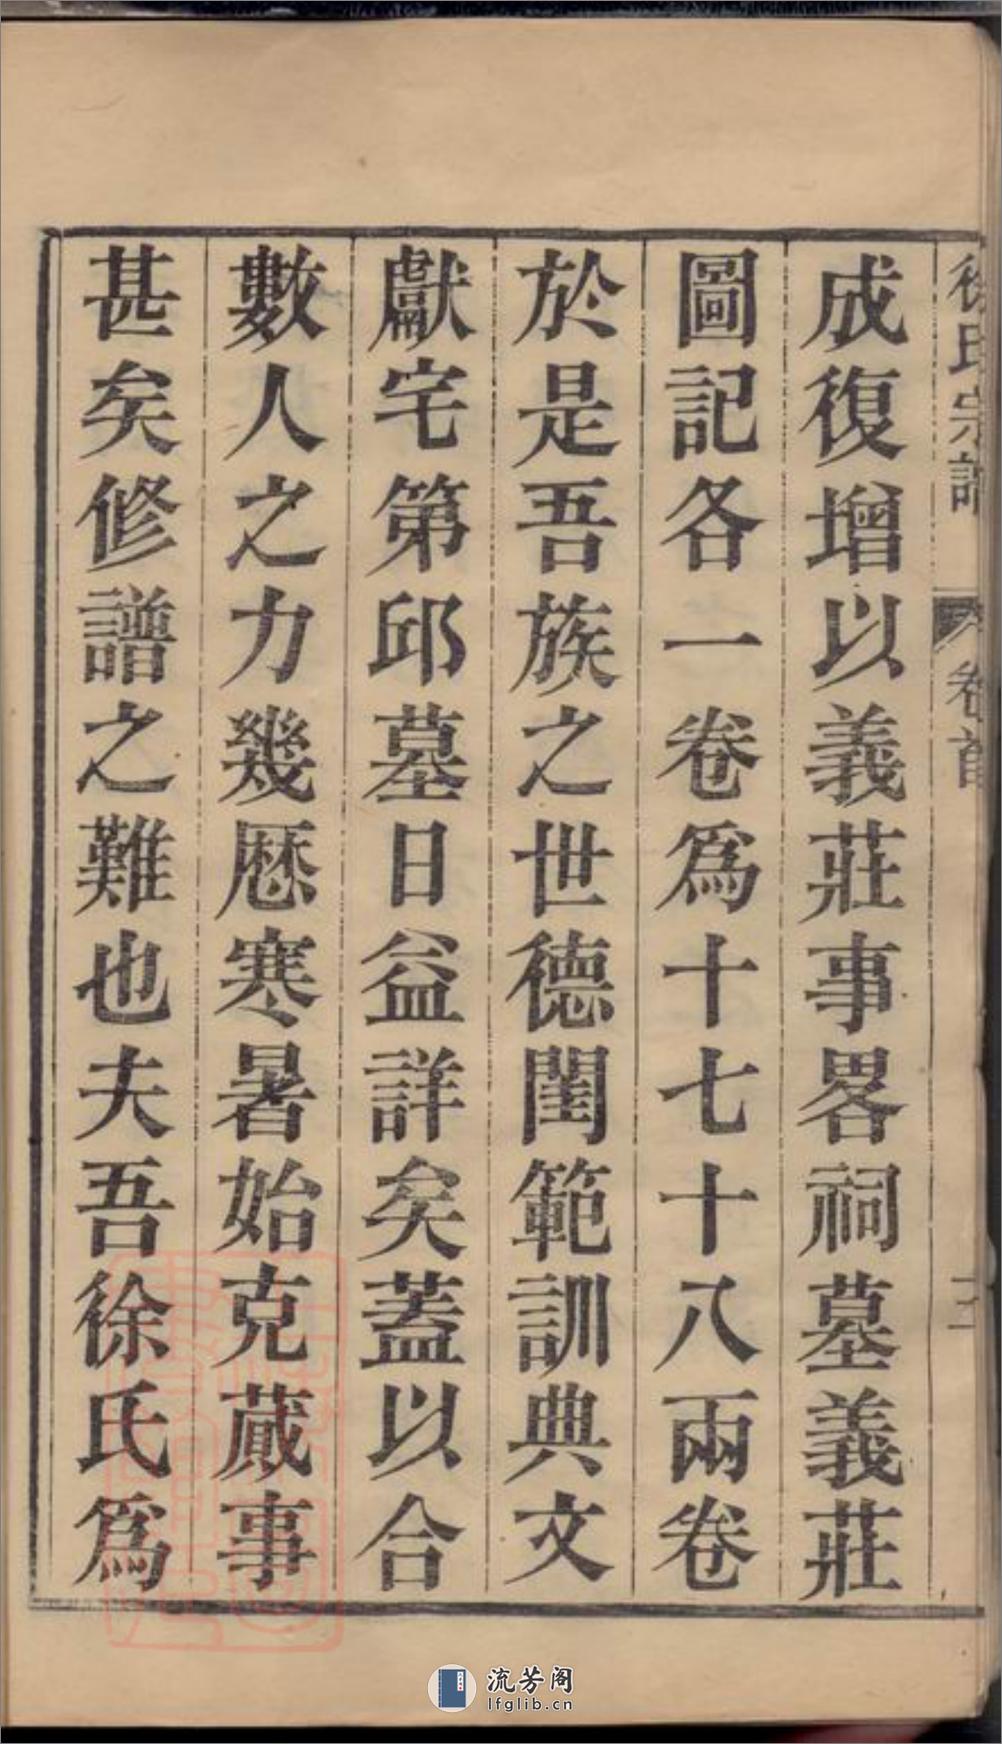 徐氏宗譜
卷首
成復增以義莊事畧祠墓義莊
圖記各一卷爲十七十八兩卷
於是吾族之世德閨範訓典文
獻宅第邱墓日益詳矣蓋以合
數人之力幾厯寒暑始克蕆事
甚矣修譜之難也夫吾徐氏爲
流芳阁
lfglib.cn